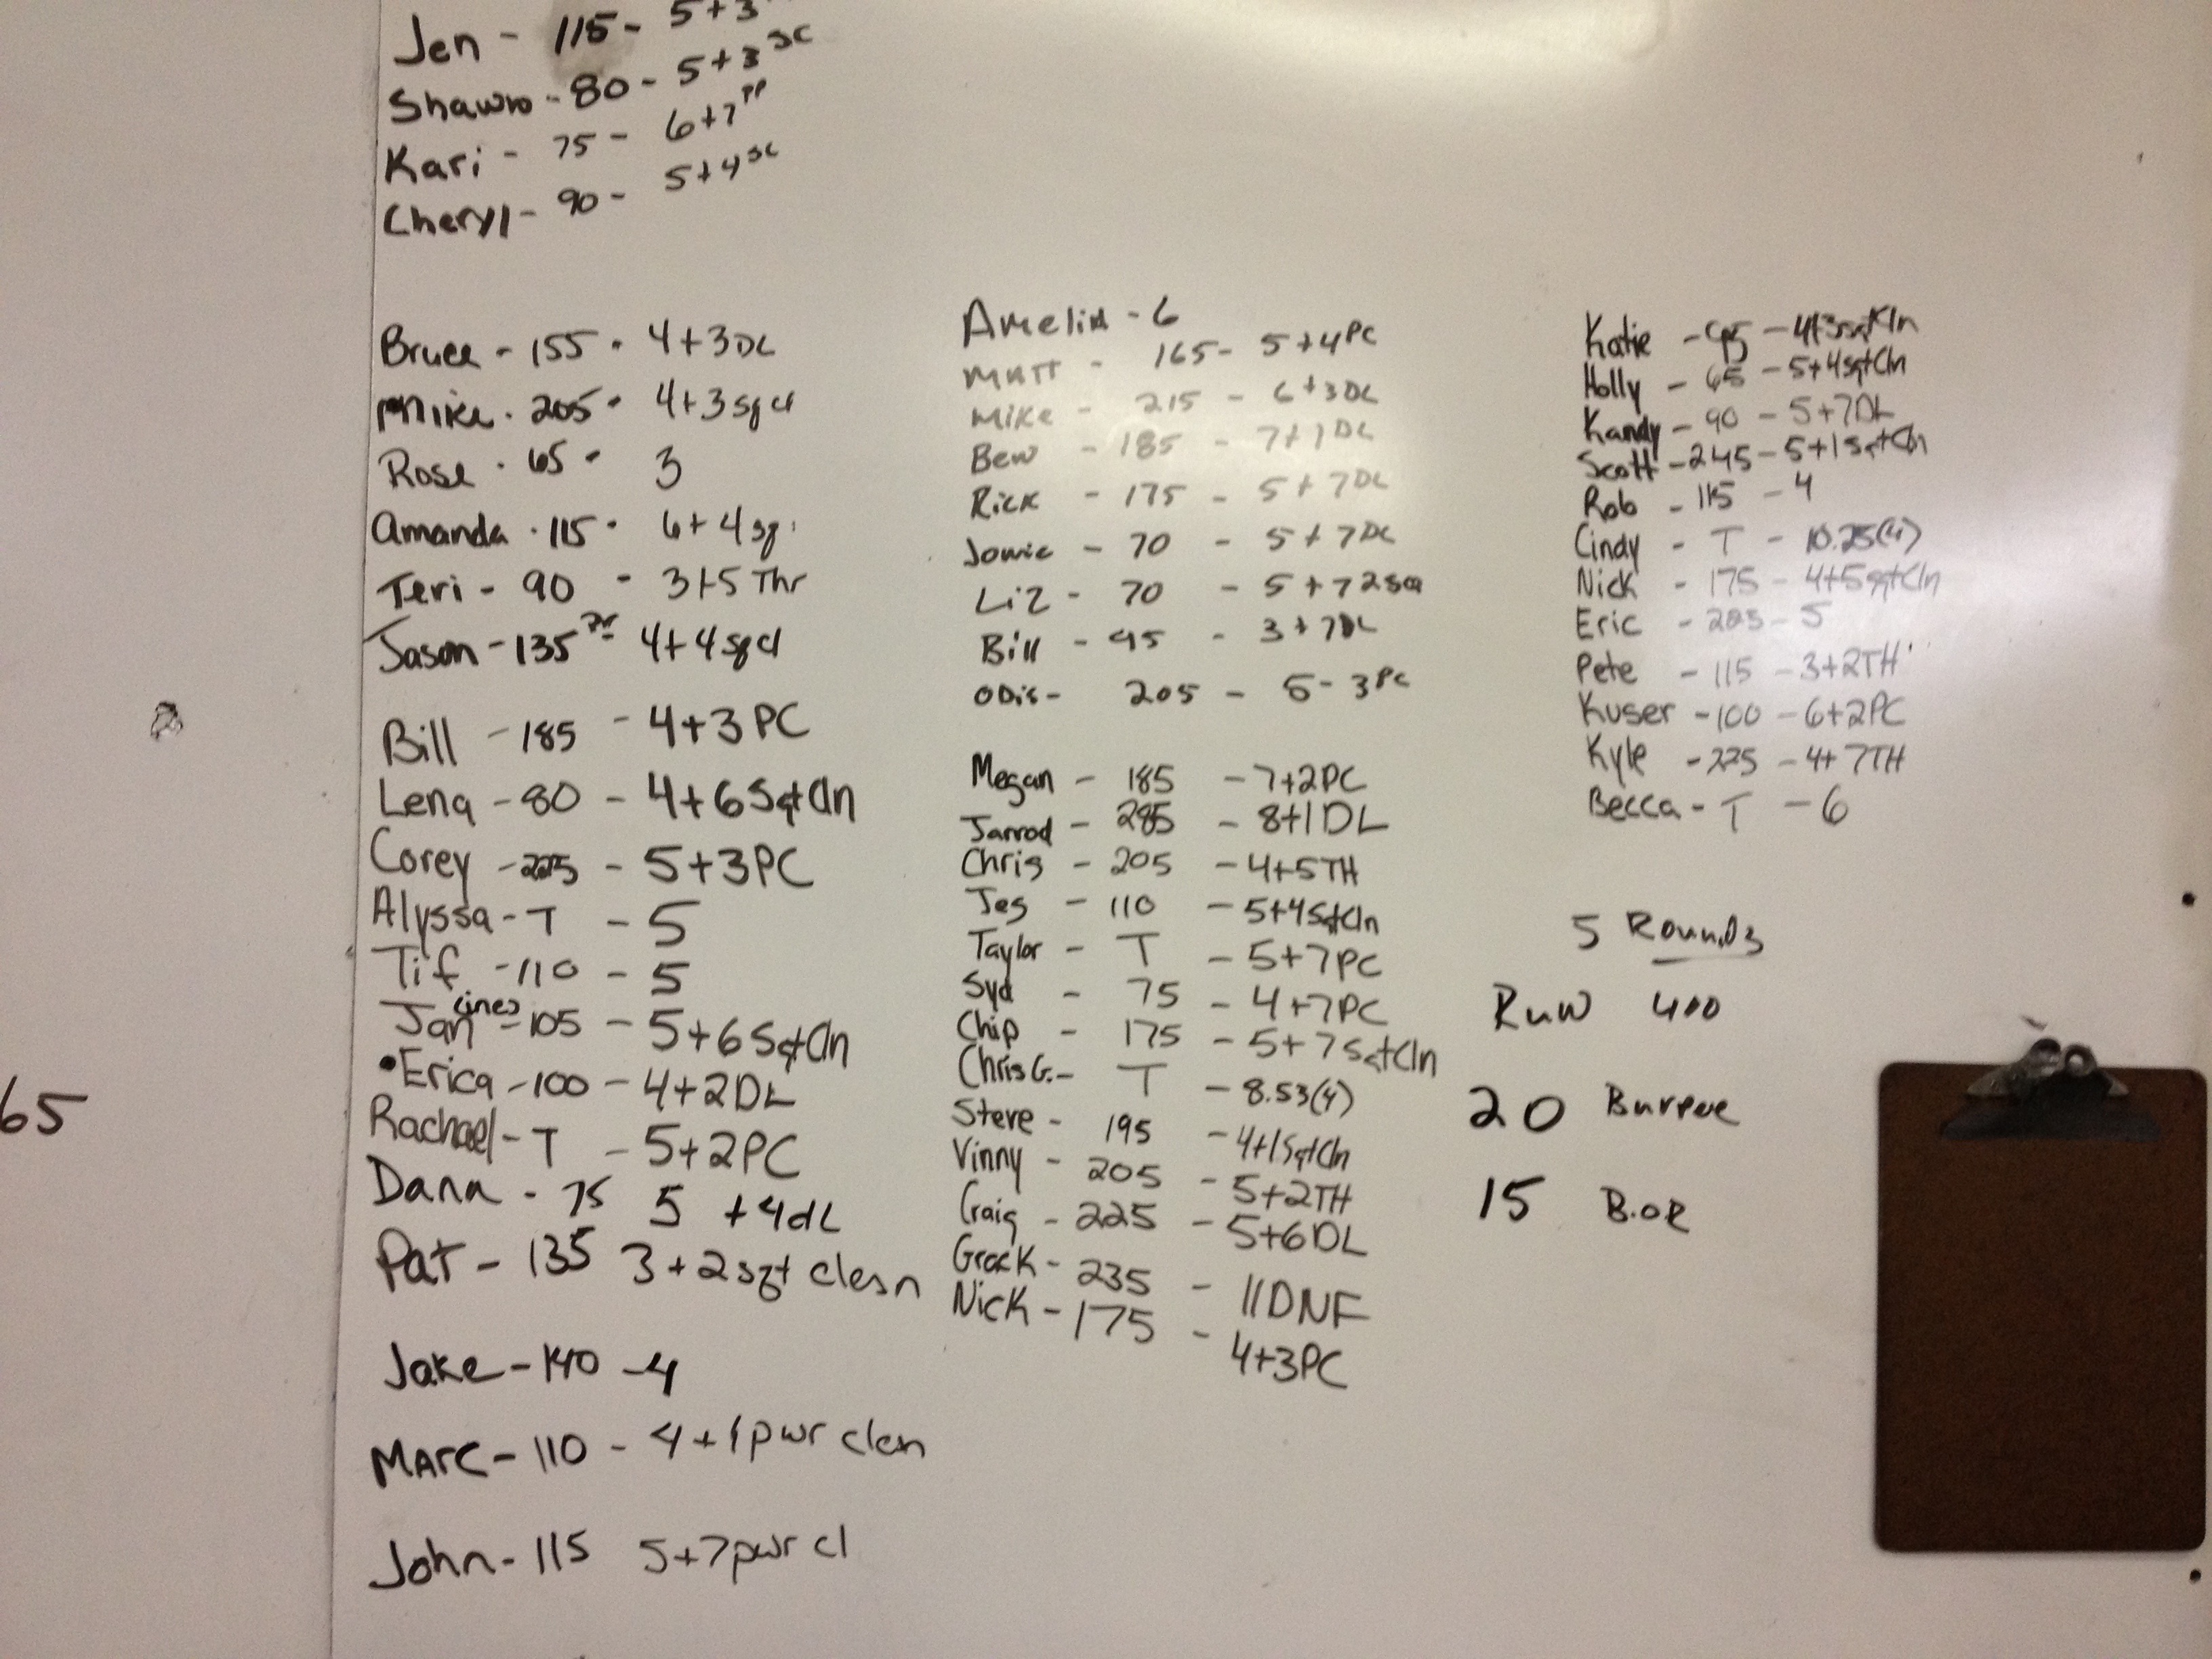 Jen - 115 - 5+3
Shawn - 80 - 5+3 SC
Kari - 75 - 6+7 PP
Cheryl - 90 - 5+4 SC
Bruce - 155 - 4+3 DL
Mike - 205 - 4+3 sqcl
Rose - 65 - 3
Amanda - 115 - 6+4 sq
Teri - 90 - 3+5 Thr
Jason - 135 - 4+4 sqcl
Bill - 185 - 4+3PC
Lena - 80 - 4+6 SqtCln
Corey - 225 - 5+3PC
Alyssa - T - 5
Tif - 110 - 5
Jan (ines) - 105 - 5+6 SqtCln
Erica - 100 - 4+2DL
Rachael - T - 5+2PC
Dana - 75 5 +4dL
Pat - 135 3+2 sqt clean
Jake - 140 - 4
Marc - 110 - 4+1 pwr clean
John - 115 5+7 pwr cl
65
Amelia - 6
Matt - 165 - 5+4 PC
Mike - 215 - 6+3 DL
Ben - 185 - 7+1 DL
Rick - 175 - 5+7 DL
70 - 5+7 DL
Liz - 70 - 5+7
Bill - 95 - 3+7 DL
Obis - 205 - 5-3 PC
Megan - 185 - 7+2PC
Jarrod - 285 - 8+1DL
Chris - 205 - 4+5TH
Jes - 110 - 5+4SqtCln
Taylor - T - 5+7PC
Syd - 75 - 4+7PC
Chip - 175 - 5+7SqtCln
Chris G. - T - 8.53(4)
Steve - 195 - 4+1SqtCln
Vinny - 205 - 5+2TH
Craig - 225 - 5+6DL
235 - 11DNF
Nick - 175 - 4+3PC
Katie - 95 - 4+3sqtCln
Holly - 65 - 5+4sqtCln
Kandy - 90 - 5+7DL
Scott - 245 - 5+1SqtCln
Rob - 115 - 4
Cindy - T - 10.25(4)
Nick - 175 - 4+5sqtCln
Eric - 205 - 5
Pete - 115 - 3+2TH
Kuser - 100 - 6+2PC
Kyle - 225 - 4+7TH
Becca - T - 6
5 Rounds
Run 400
20 Burpee
15 B.OR